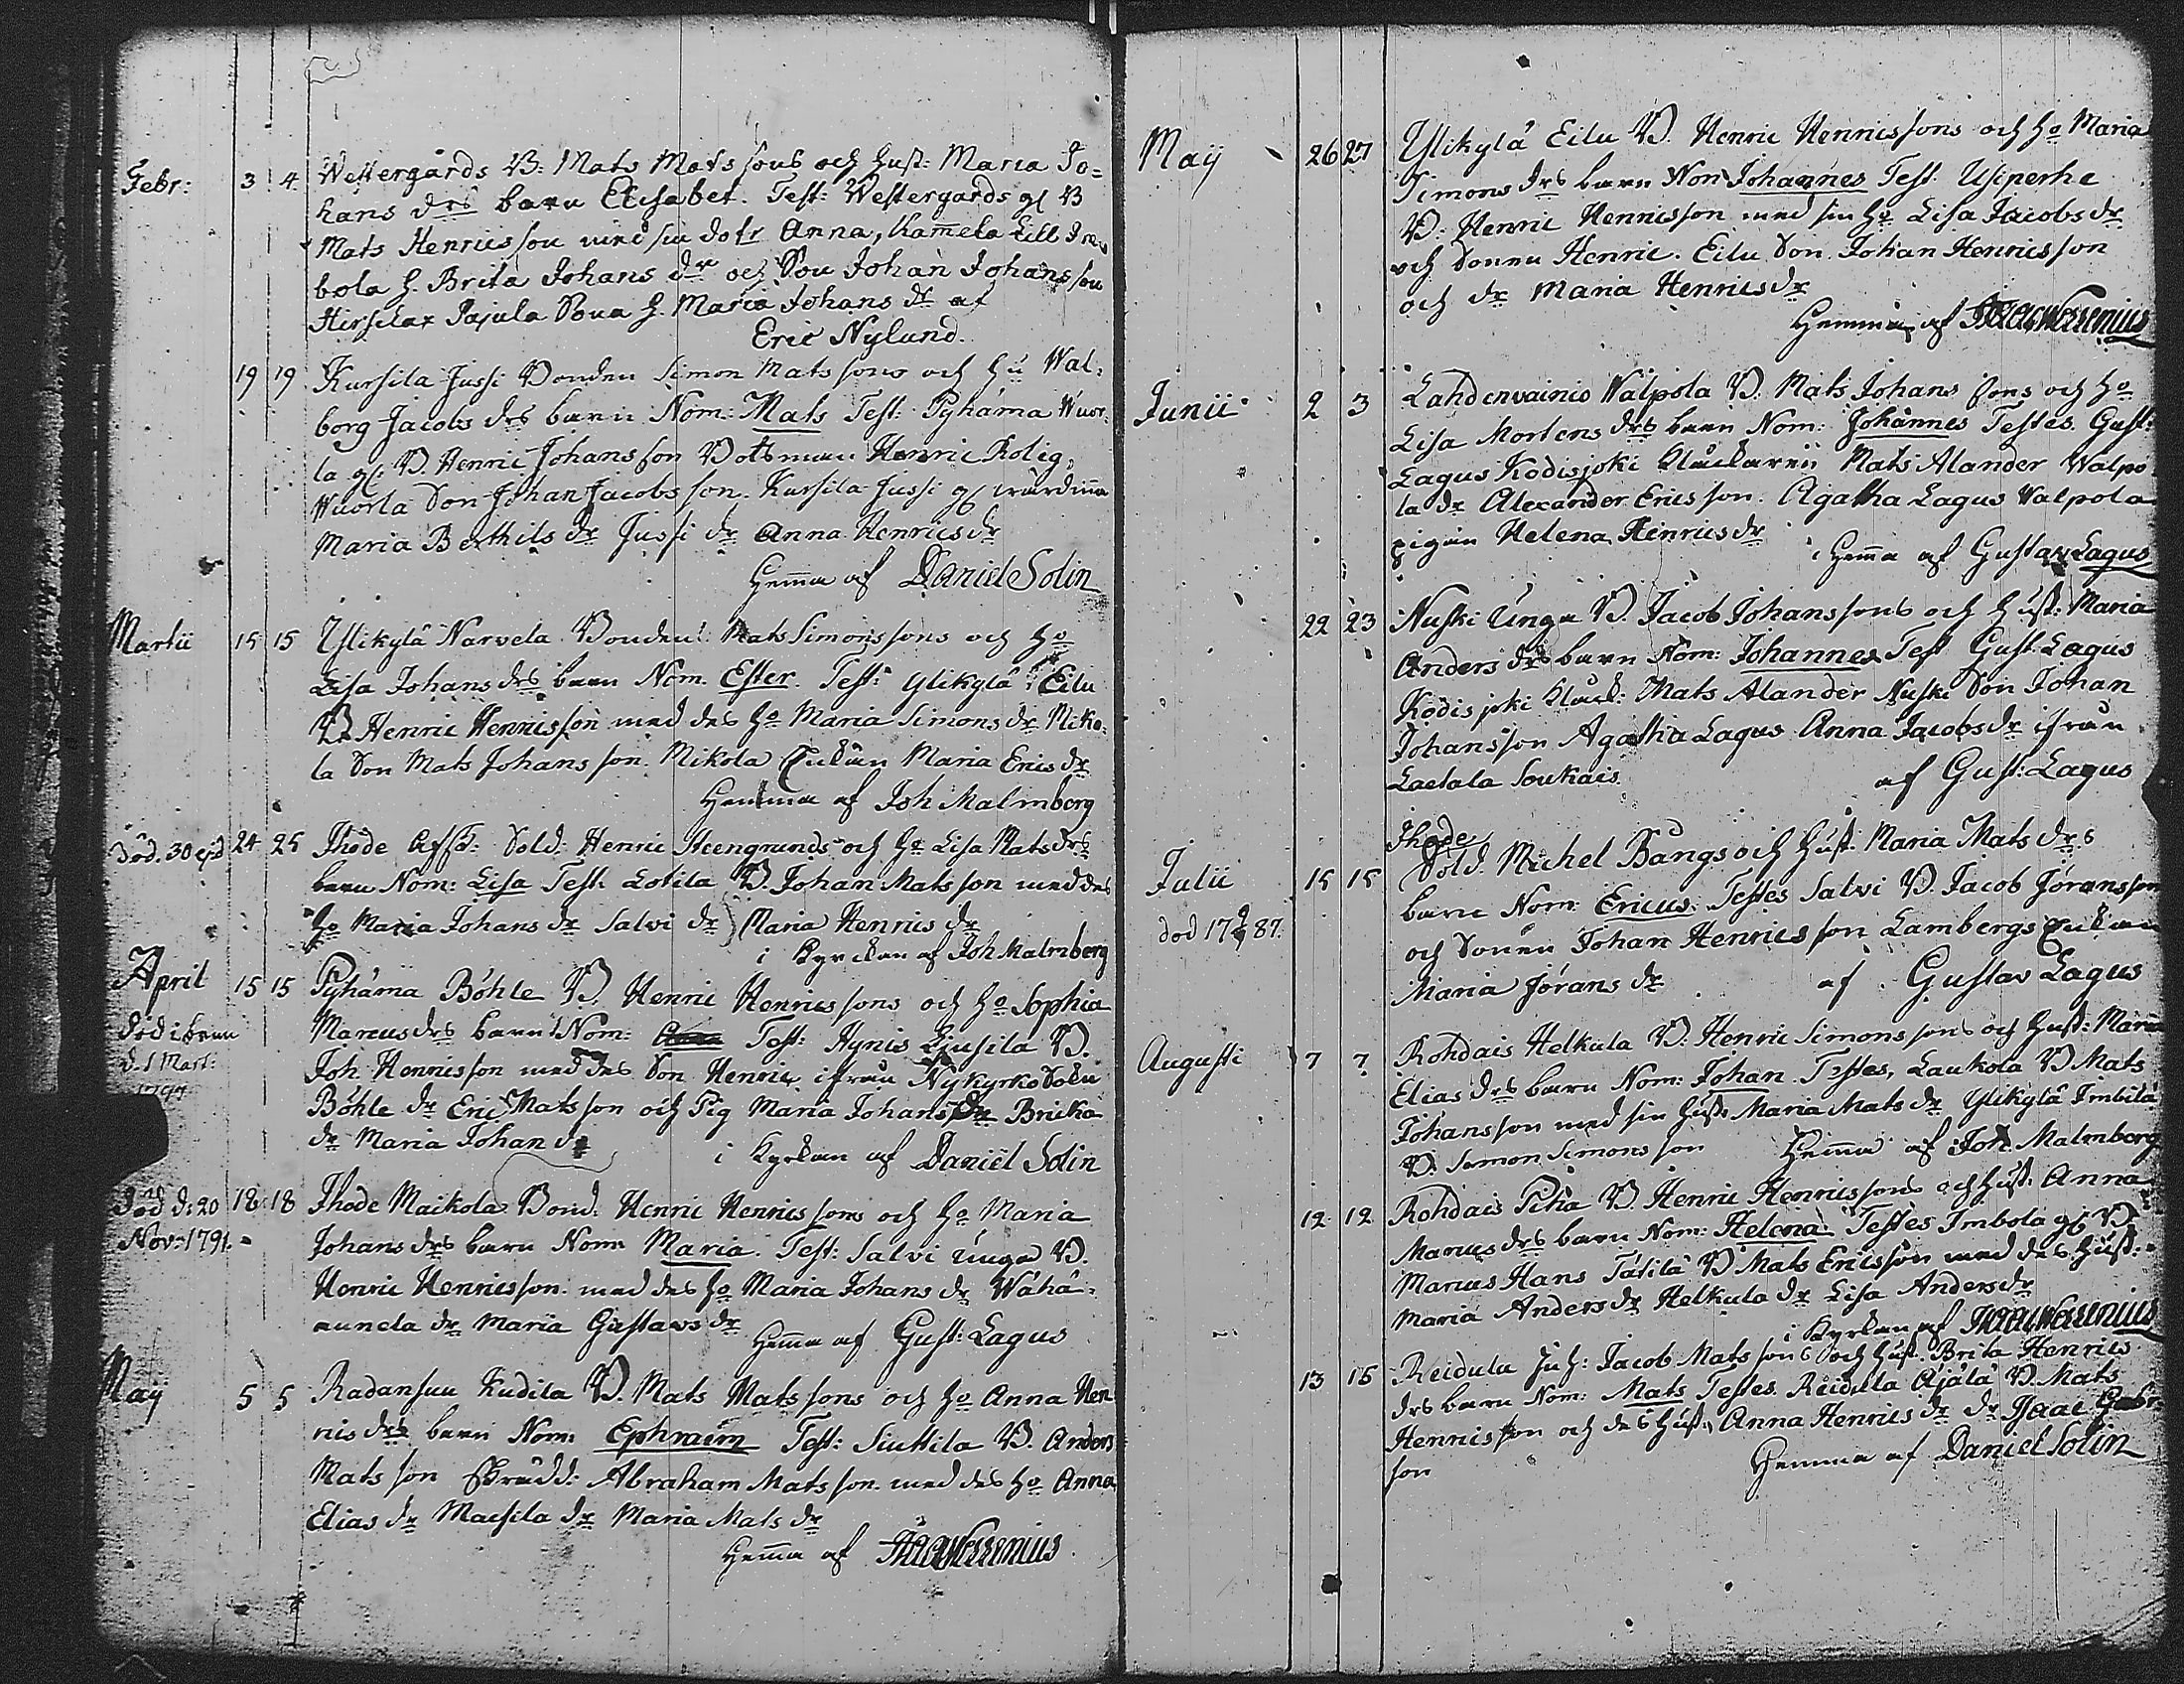 Febr: 3 4 Westergårds B: Mats Matssons och hust: Maria Jo=
hans drs barn Elisabet. Test: Westergårds gl B
Mats Henricsson med sin dotr Anna,
bola h. Brita Johans dr och Son Johan Johansson
Pajula Sona h. Maria Johans dr af
Eric Nylund.
19 19 Kursila Jussi Bonden Simon Matssons och hu Wal=
borg Jacobs drs barn Nom: Mats Test: Pyhäma Wuor=
la gl. B. Henric Johansson Botsman Henric Rolig,
Wuorla Son Johan Jacobsson. Kursila Jussi gl wärdinna
Maria Berthils dr Jussi dr Anna Henrics dr
Hemma af Daniel Solin
Martii 15 15 Ylikylä Narvela Bonden: Mats Simonssons och ho
Lisa Johans drs barn Nom. Ester. Test: Ylikylä Eilu
B. Henric Henricsson med des ho Maria Simons dr Miko=
la Son Mats Johansson. Mikola Enkan Maria Erics dr
Hemma af Joh Malmberg
död. 30 ejd 24 25 Ihode Afsk: Sold: Henric Steengrunds och ho Lisa Mats drs
barn Nom: Lisa Test: Lotila B. Johan Matsson med des
ho Maria Johans dr Salvi dr Maria Henrics dr
i Kyrckan af Joh Malmberg
April 15 15 Pyhäma Böhle B. Henric Henricssons och ho Sophia
död i
Marcus drs barn Nom: Anna Test: Hynis Ljusila B.
d. 1 Mart:
Joh. Henricsson med des Son Henric, ifrån Nykyrko Sokn
Böhle dr Eric Matsson och Pig Maria Johans dr Bricka
dr Maria Johan dr
i Kyrkan af Daniel Solin
död d: 20 18 18 Ihode Maikola Bond: Henric Henricssons och ho Maria
Nov: 1791.
Johans drs barn Nom Maria. Test: Salvi Unga B.
Henric Henricsson. med des ho Maria Johans dr Wähä=
dr Maria Gustavs dr
Hemma af Gust: Lagus
Maij 5 5 Radansuu Kudila B. Mats Matssons och ho Anna Hen
rics drs barn Nom: Ephraim Test: Siuttila B. Anders
Matsson Skrädd: Abraham Matsson. med des ho Anna
Elias dr Macsila dr Maria Mats dr
Hemma af
Maij 26 27 Ylikylä Eilu B. Henric Henricssons och ho Maria
Simons drs barn Nom Johannes Test. Usiperhe
B. Henric Henricsson med sin ho Lisa Jacobs dr
och Sonen Henric. Eilu Son Johan Henricsson
och dr Maria Henrics dr
Hemma af
Junii 2 3 Lahdenvainio Walpola B. Mats Johanssons och ho
Lisa Mortens drs barn Nom: Johannes Testes. Gust:
Lagus Kodisjoki Klåckaren Mats Alander Walpo
la dr Alexander Ericsson. Agatha Lagus Walpola
pigan Helena Henrics dr
Hemma af Gustav Lagus
22 23 Nuski Unga B. Jacob Johanssons och hust: Maria
Anders drs barn Nom: Johannes Test Gust: Lagus
Kodisjoki Klåck: Mats Alander Nuski Son Johan
Johansson Agatha Lagus Anna Jacobs dr ifrån
Laetala Soukais
af Gust: Lagus
Ihode
Julii 15 15 Sold. Michel Bangs och hust: Maria Mats drs
död 17 87.
barn Nom: Ericus. Testes Salvi B. Jacob Jöransson
och Sonen Johan Henricsson Lambergs Enkan
Maria Jörans dr
af Gustav Lagus
Augusti 7 7 Rohdais Helkula B. Henric Simonssons och hust: Maria
Elias drs barn Nom: Johan. Testes, Laukola B Mats
Johansson med sin hust: Maria Mats dr Ylikylä Imbilä
B. Simon Simonsson
Hemma af Joh Malmberg
12 12 Rohdais Piha B. Henric Henricssons och hust: Anna
Marcus drs barn Nom: Helena Testes Imbola gl B
Marcus Hans Tätilä B Mats Ericsson med des hust:
Maria Anders dr Helkula dr Lisa Anders dr
i Kyrkan af
13 15 Reidula Jacob Matssons och hust. Brita Henrics
drs barn Nom: Mats Testes. Reidula Äjälä B. Mats
Henricsson och des hust: Anna Henrics dr dr Isaac Gabr:
son
Hemma af Daniel Solin